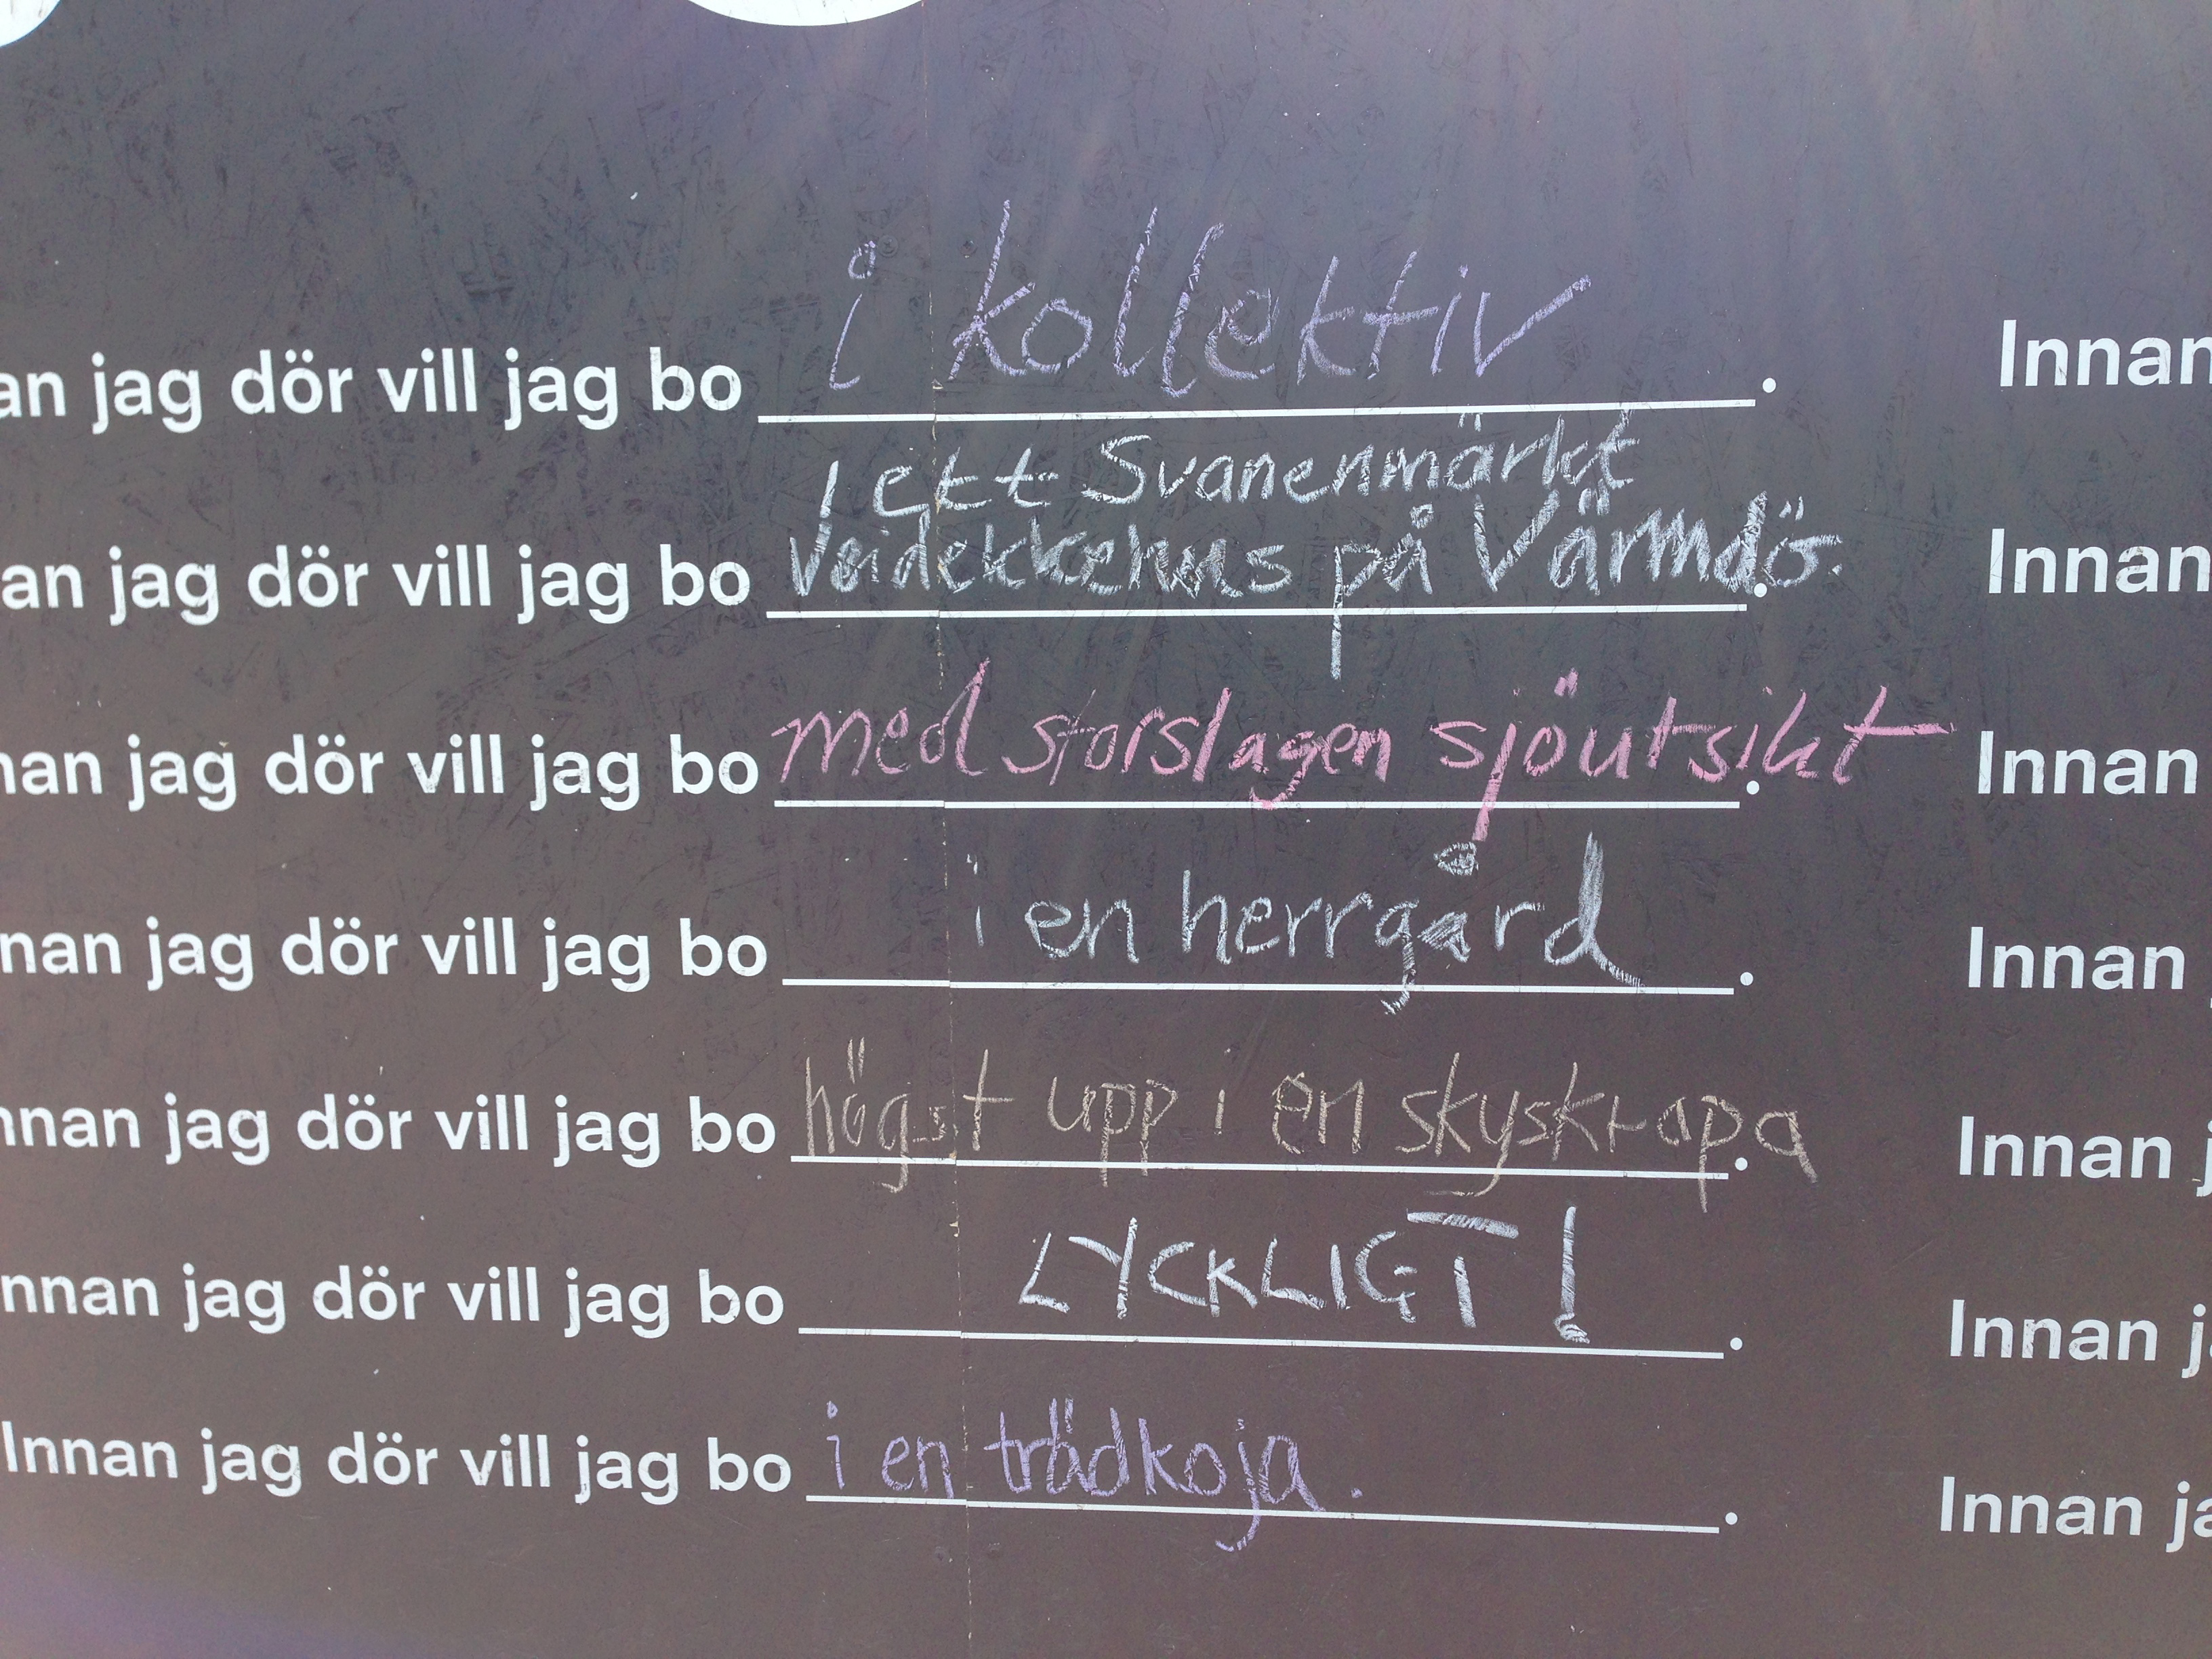 an jag dör vill jag bo i kollektiv. Innan
I ett Svanenmärkt
an jag dör vill jag bo Veidekkehus på Värmdö. Innan
nan jag dör vill jag bo med storslagen sjöutsikt. Innan
nan jag dör vill jag bo i en herrgård. Innan
nnan jag dör vill jag bo högst upp i en skyskrapa. Innan j
nnan jag dör vill jag bo LYCKLIGT!. Innan ja
Innan jag dör vill jag bo i en trädkoja.. Innan ja